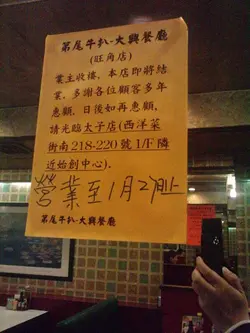 第尾牛扒-大興餐廳
(旺角店)
業主收樓,本店即將結
業。多謝各位顧客多年
惠顧,日後如再惠顧,
請光臨太子店(西洋菜
街南218-220號1/F隣
近始創中心).
營業至1月2日止
第尾牛扒-大興餐廳